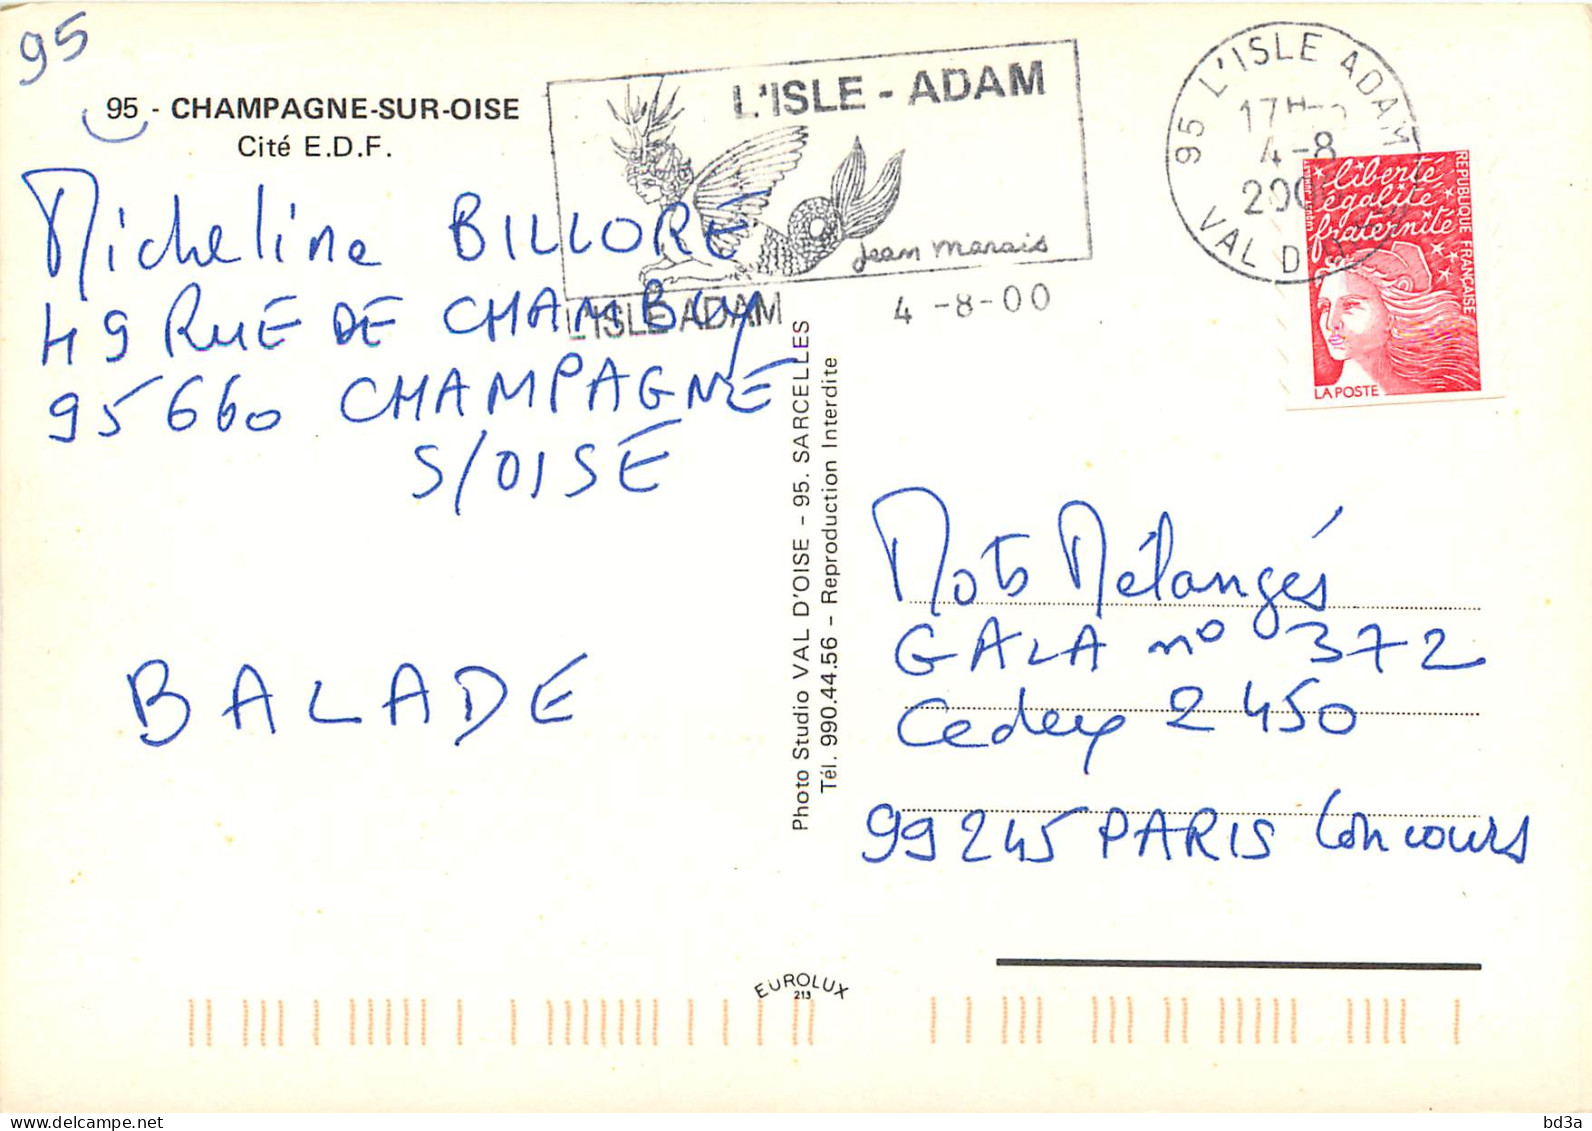 95
95 - CHAMPAGNE-SUR-OISE
Cité E.D.F.
L'ISLE - ADAM
Jean Marais
L'ISLE ADAM
4 -8-00
95 L'ISLE ADAM
17H
4-8
VAL D'OISE
liberté
égalité
fraternité
REPUBLIQUE FRANÇAISE
LA POSTE
Micheline BILLORÉ
49 RUE DE CHAMBLY
95660 CHAMPAGNE
S/OISE
BALADE
Photo Studio VAL D'OISE - 95. SARCELLES
Tél. 990.44.56 - Reproduction Interdite
Mots Mélangés
GALA n° 372
Cedex 2450
99245 PARIS Concours
EUROLUX
213
bd3a